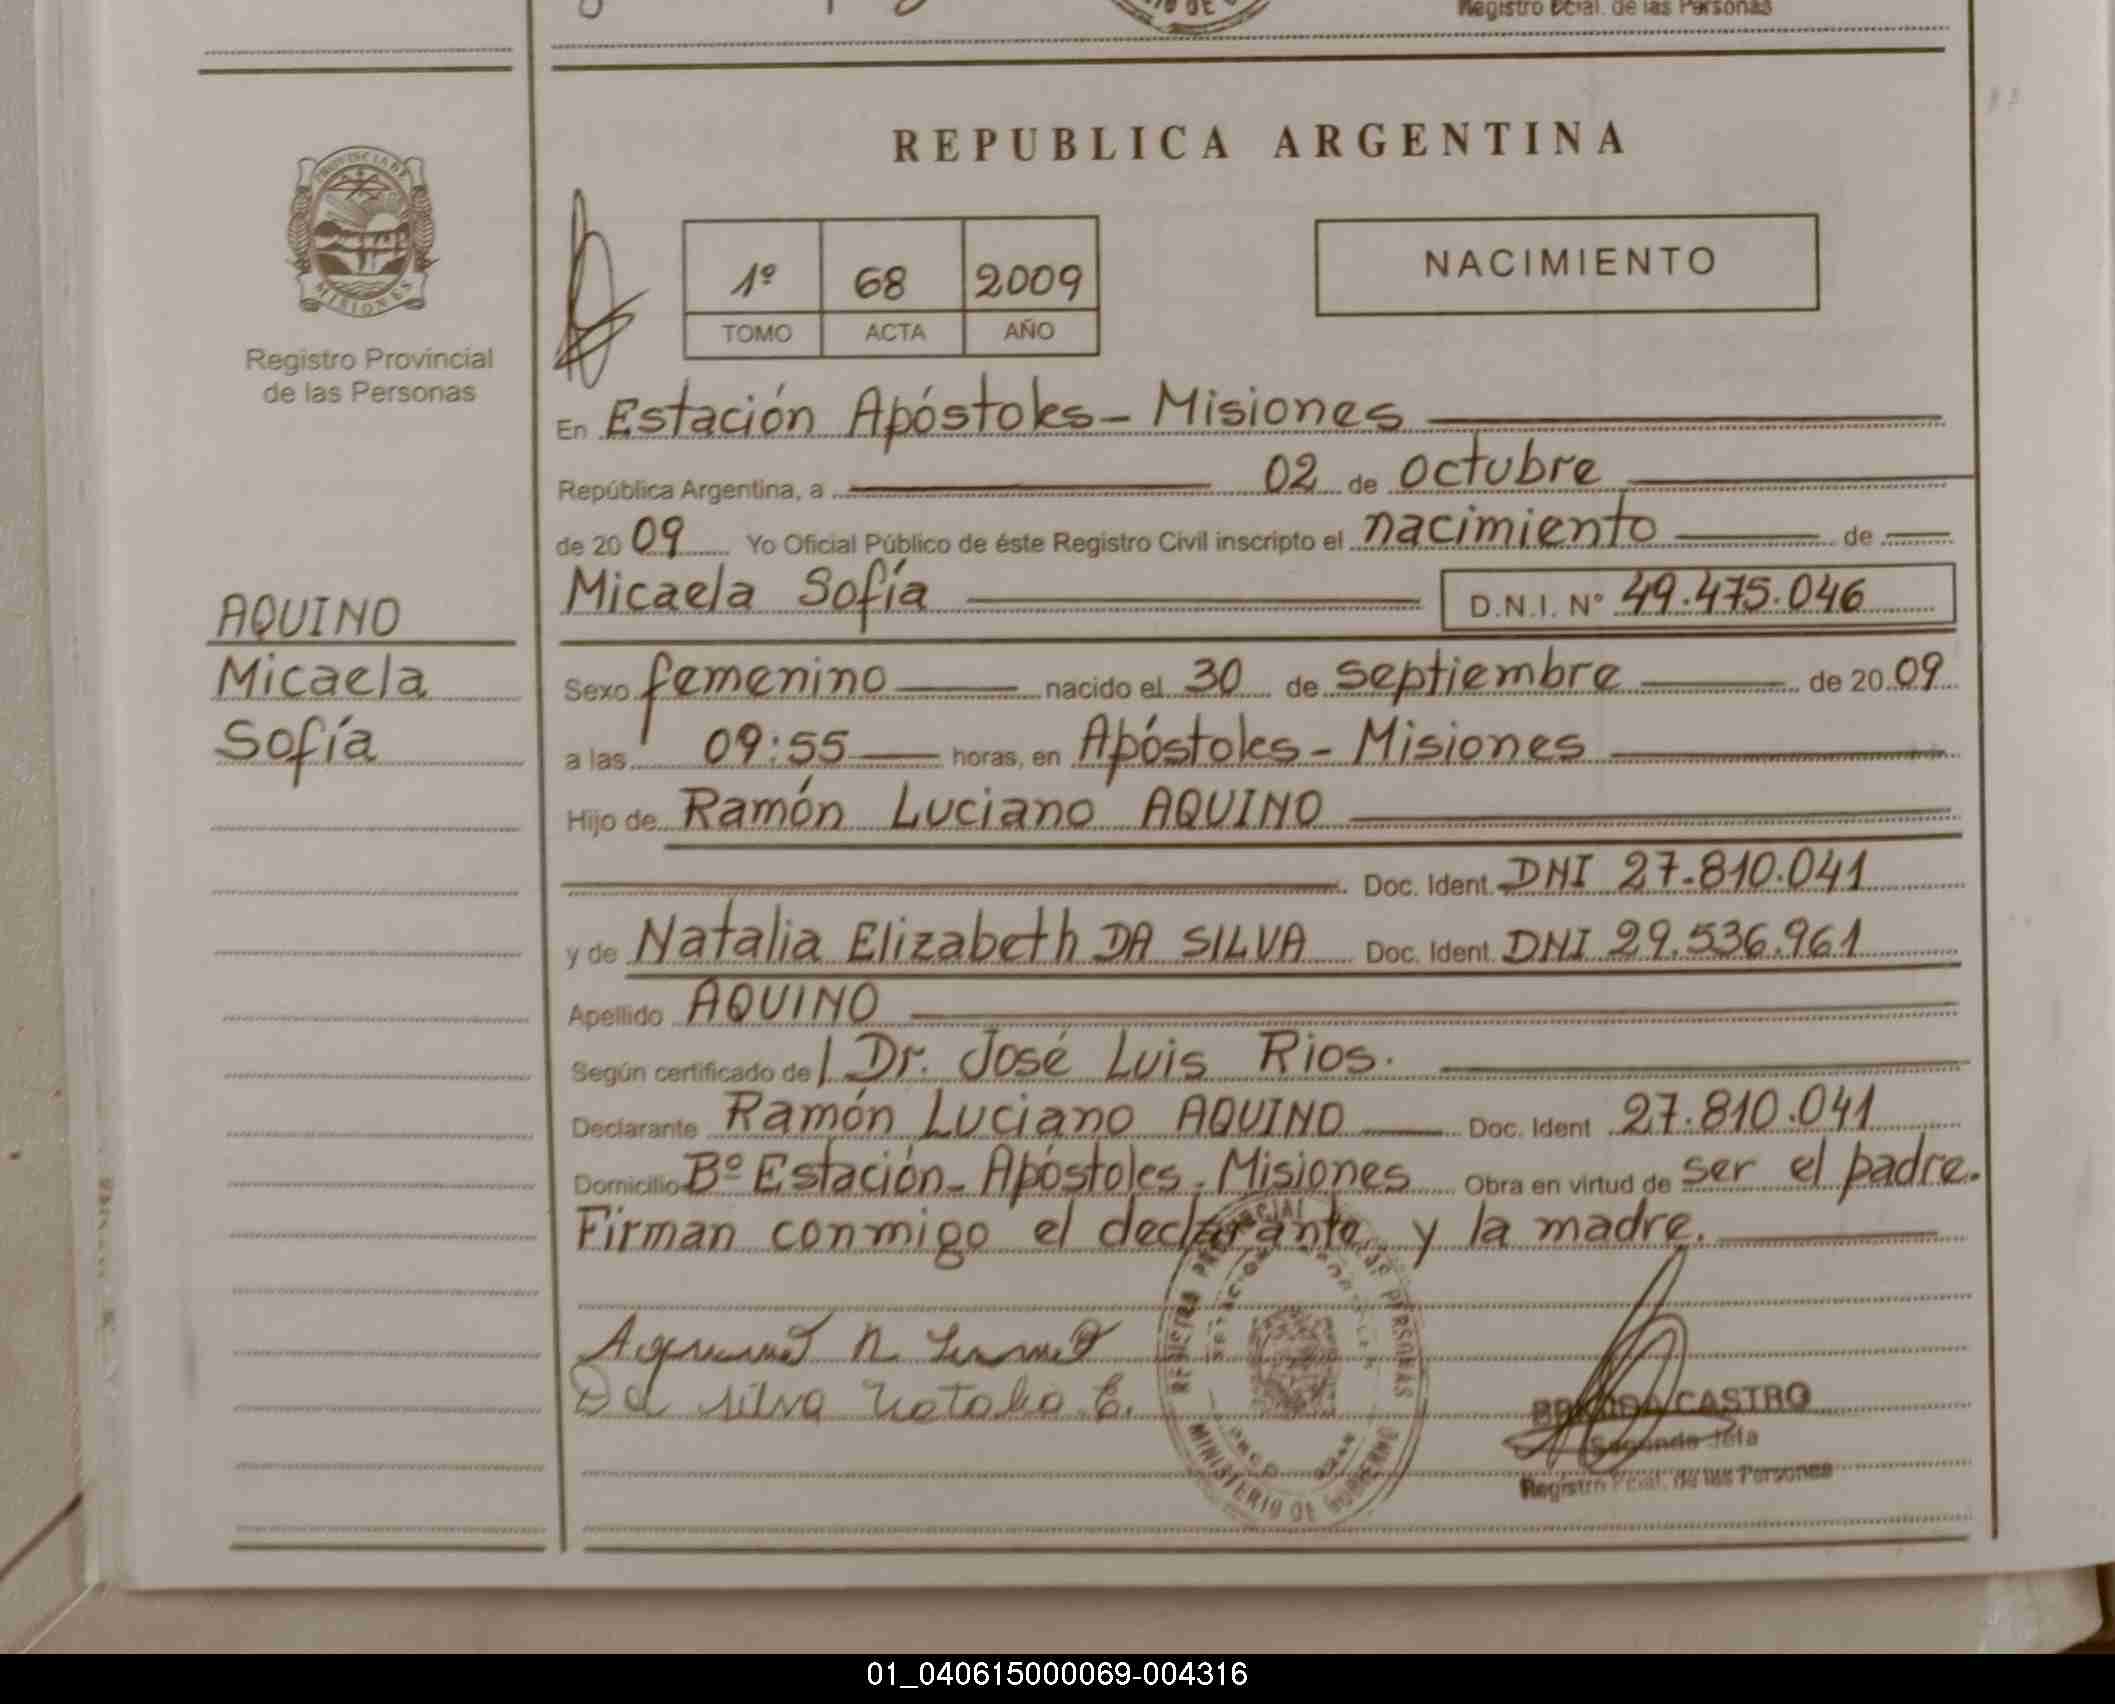 Registro Pcial. de las Personas
REPUBLICA ARGENTINA
PROVINCIA DE
MISIONES
Registro Provincial
de las Personas
1º 68 2009
TOMO ACTA AÑO
NACIMIENTO
En Estación Apóstoles - Misiones
República Argentina, a 02 de octubre
de 2009 Yo Oficial Público de éste Registro Civil inscripto el nacimiento de
Micaela Sofía D.N.I. N° 49.475.046
AQUINO
Micaela
Sofía
Sexo femenino nacido el 30 de septiembre de 2009
a las 09:55 horas, en Apóstoles - Misiones
Hijo de Ramón Luciano AQUINO
Doc. Ident. DNI 27.810.041
y de Natalia Elizabeth DA SILVA Doc. Ident. DNI 29.536.961
Apellido AQUINO
Según certificado de Dr. José Luis Rios.
Declarante Ramón Luciano AQUINO Doc. Ident 27.810.041
Domicilio Bº Estación - Apóstoles - Misiones Obra en virtud de ser el padre.
Firman conmigo el declarante y la madre.
Da silva Natalia E.
REGISTRO PROVINCIAL DE LAS PERSONAS
MINISTERIO DE GOBIERNO
CASTRO
Registro Pcial. de las Personas
01_040615000069-004316